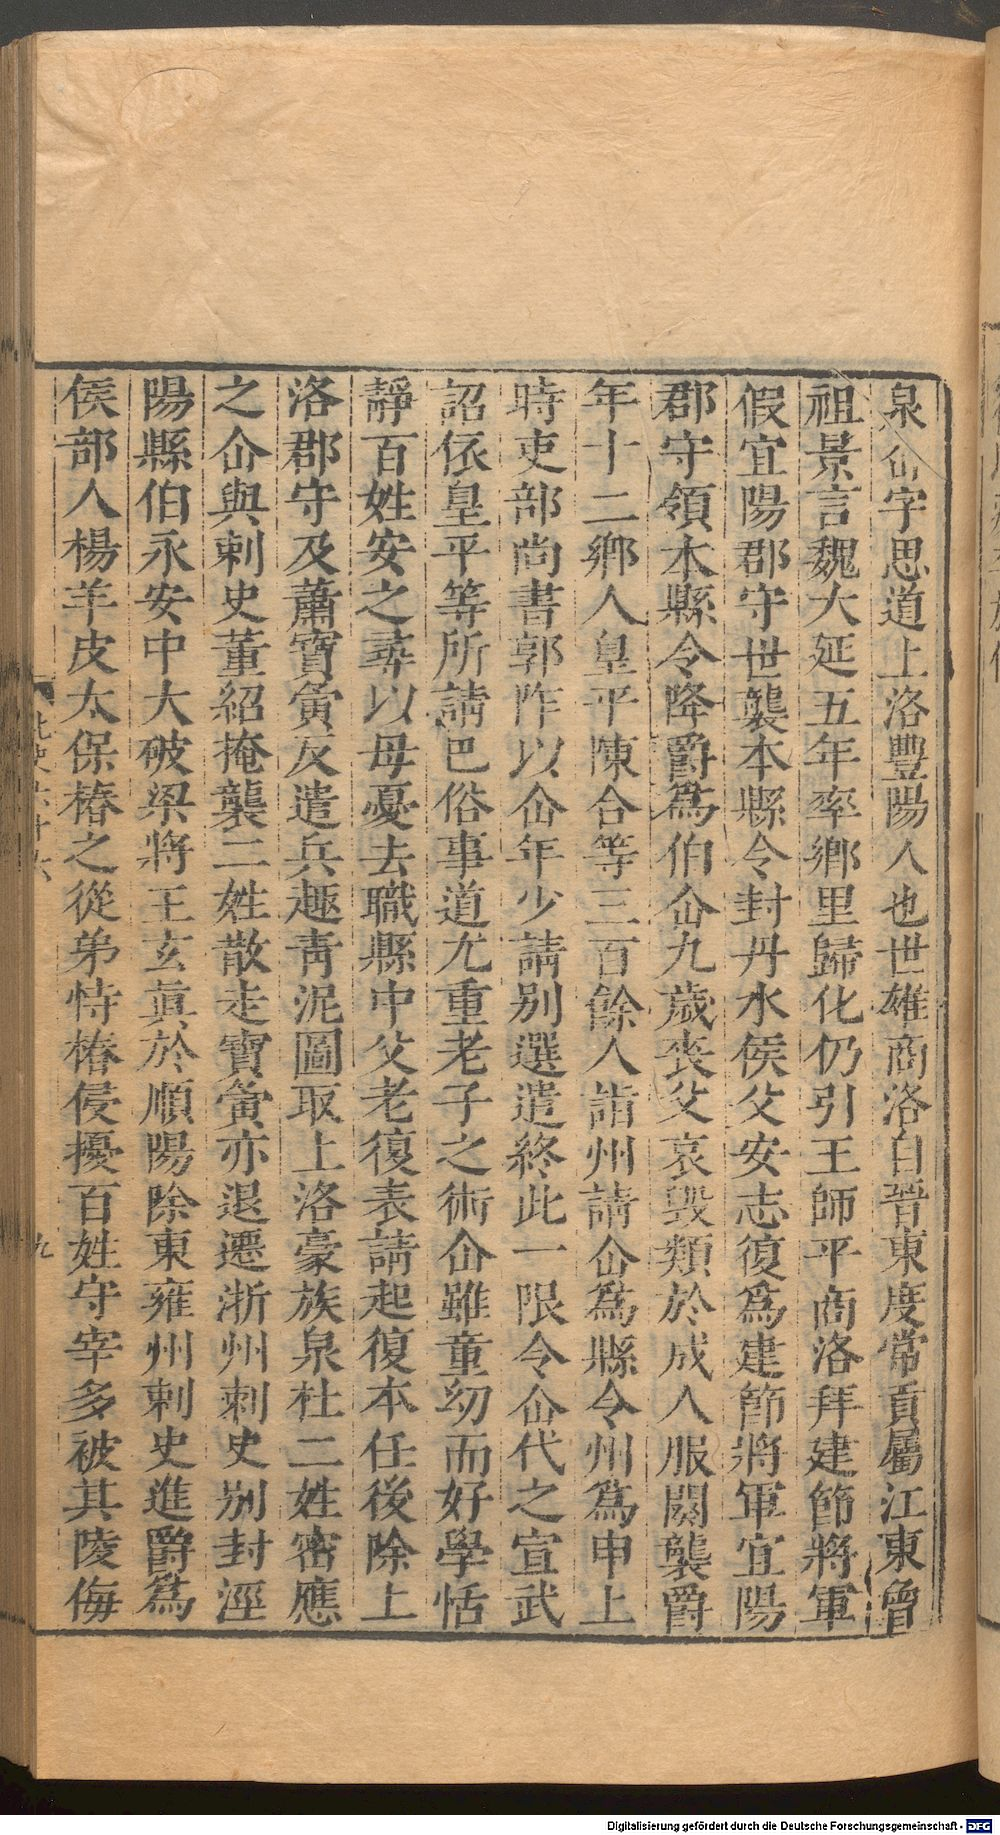 泉仚字思道上洛豐陽人也世雄商洛自晉東度常貢屬江東曾
祖景言魏大延五年率鄉里歸化仍引王師平商洛拜建節將軍
假宜陽郡守世襲本縣令封丹水侯父安志復爲建節將軍宜陽
郡守領本縣令降爵爲伯仚九歲喪父哀毀類於成人服闋襲爵
年十二鄉人皇平陳合等三百餘人詣州請仚爲縣令州爲申上
時吏部尚書郭祚以仚年少請別選遣終此一限令仚代之宣武
詔依皇平等所請巴俗事道尤重老子之術仚雖童幼而好學恬
靜百姓安之尋以母憂去職縣中父老復表請起復本任後除上
洛郡守及蕭寶夤反遣兵趣青泥圖取上洛豪族泉杜二姓密應
之仚與刺史董紹掩襲二姓散走寶夤亦退遷浙州刺史別封涇
陽縣伯永安中大破梁將王玄眞於順陽除東雍州刺史進爵爲
侯部人楊羊皮太保椿之從弟恃椿侵擾百姓守宰多被其陵侮
北史六十六
九
Digitalisierung gefördert durch die Deutsche Forschungsgemeinschaft - DFG